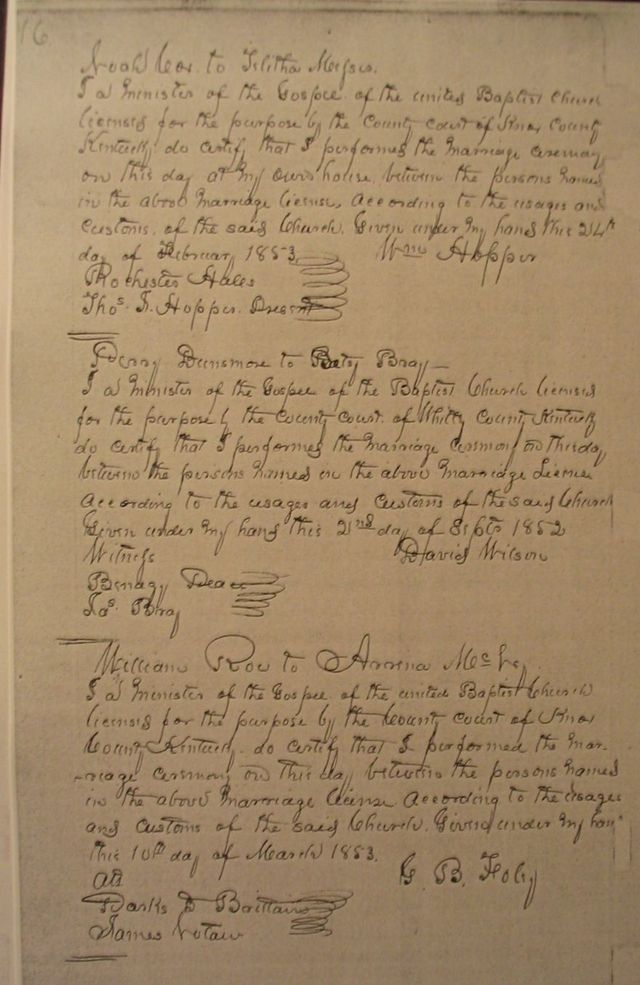 16
Noah Cox to Tilitha Messer.
I a Minister of the Gospel of the united Baptist Church
licensed for the purpose by the County court of Knox County
Kentucky do certify that I performed the Marriage ceremony
on this day at my own house between the persons named
in the above marriage license, according to the usages and
customs of the said Church. Given under my hand this 24th
day of February 1853. Wm Hopper
Rochester Hales
Thos. Hopper. Present
Perry Dunsmore to Betsy Bray
I a minister of the Gospel of the Baptist Church licensed
for the purpose by the County court of Whitly County Kentucky
do certify that I performed the marriage cermony on this day
between the persons named in the above marriage License
according to the usages and customs of the said Church
Given under my hand this 2nd day of Septr 1852
Witness David Wilson
Jas. Bray
William Roe to Arrena
I a minister of the Gospel of the united Baptist Church
licensed for the purpose by the County court of Knox
County Kentucky. do certify that I performed the mar-
-riage ceremony on this day between the persons named
in the above marriage license according to the usages
and customs of the said Church. Given under my hand
this 10th day of March 1853.
G. B. Foley
James